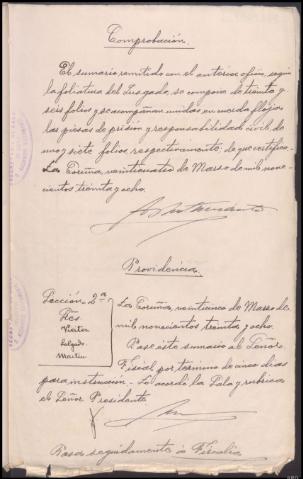 Comprobación.
El sumario remitido con el anterior oficio, según
la foliatura del Juzgado, se compone de treinta y
seis folios y se acompañan unidas en cuerda floja
las piezas de prisión y responsabilidad civil de
uno y siete folios respectivamente: de que certifico.-
La Coruña, veinticuatro de Marzo de mil nove-
cientos treinta y ocho.
Providencia.
Sección 2ª
Ftes
Vieitez
Salgado
Martin
La Coruña, veinticinco de Marzo de
mil novecientos treinta y ocho.
Pase este sumario al Señor
Fiscal por término de días
para instrucción.- Lo acordó la Sala y rubrica
el Señor Presidente
Pasa seguidamente a Fiscalía